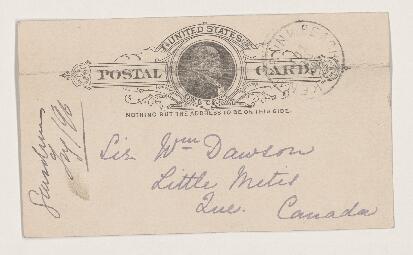 UNITED STATES
POSTAL CARD.
ONE CENT
NOTHING BUT THE ADDRESS TO BE ON THIS SIDE.
Sir Wm Dawson
Little Metis
Que. Canada